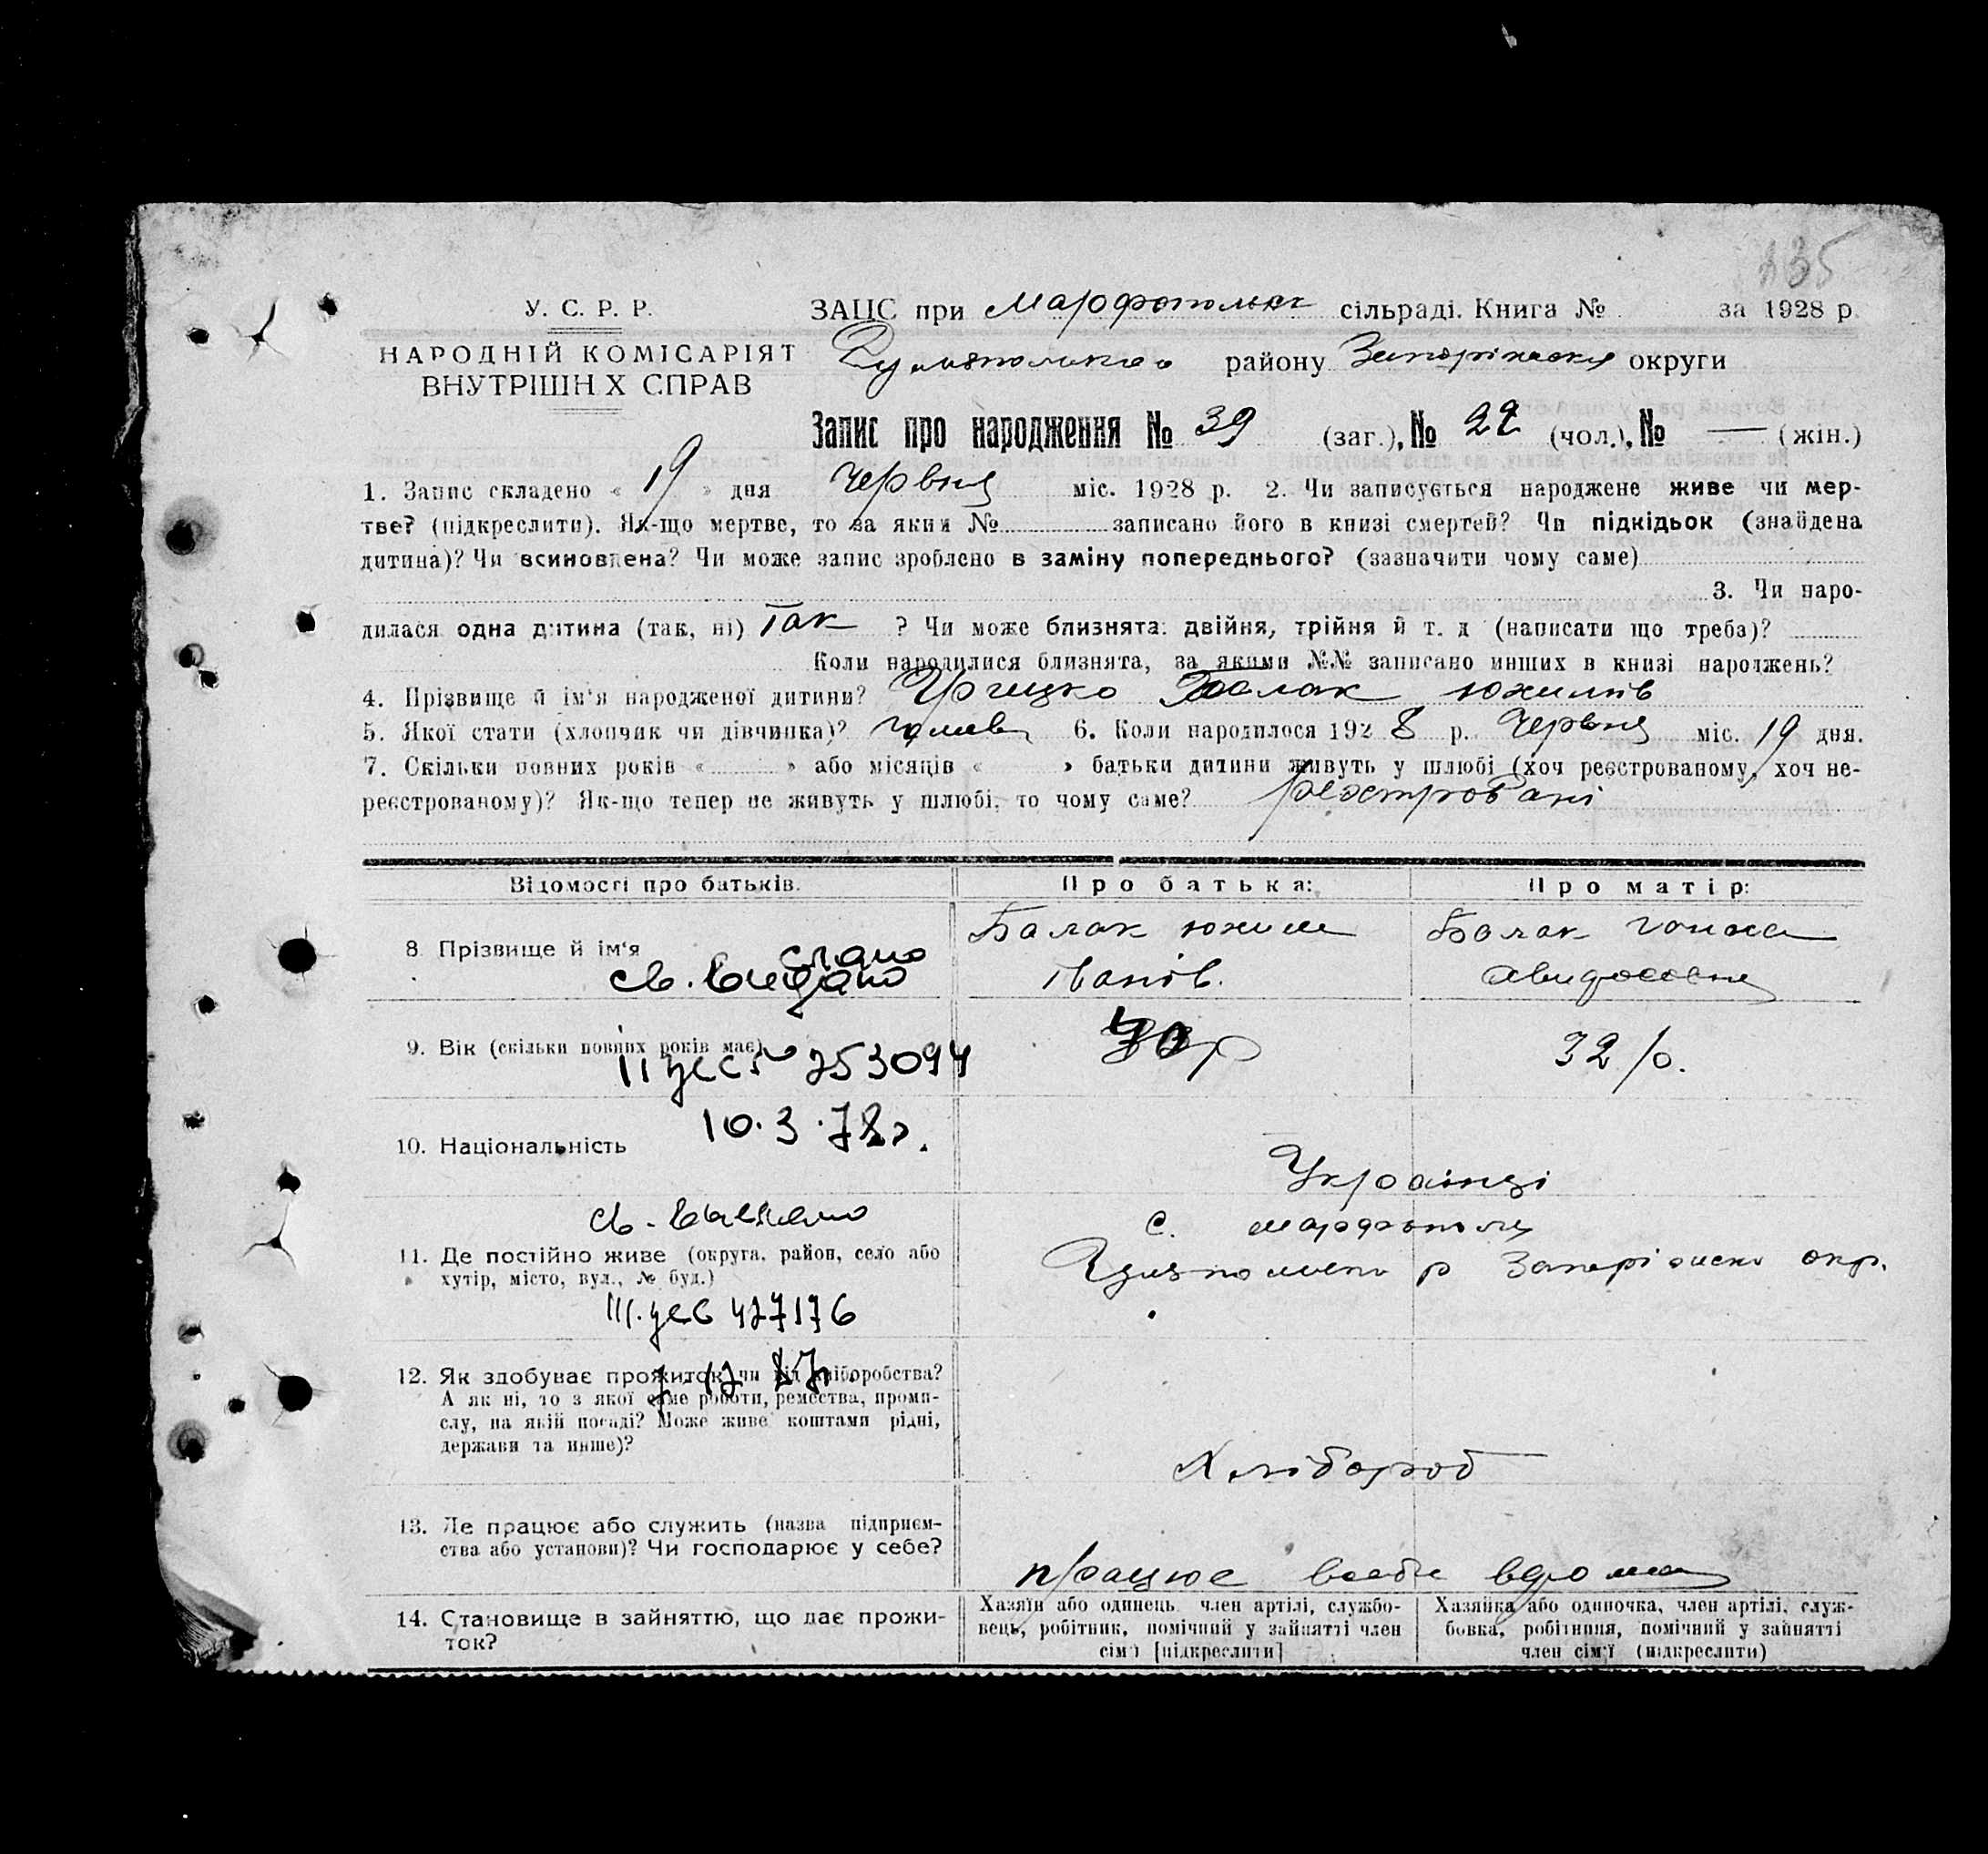 135
У. С. Р. Р.
НАРОДНІЙ КОМІСАРІЯТ
ВНУТРІШН Х СПРАВ
ЗАЦС при Марфопольск сільраді. Книга № за 1928 р
району Запоріжської округи
Запис про народження № 39 (заг.), № 22 (чол.), № — (жін.)
1. Запис складено « 19 » дня Червня міс. 1928 р. 2. Чи записується народжене живе чи мер-
тве? (підкреслити). Як-що мертве, то за яким № записано його в книзі смертей? Чи підкідьок (знайдена
дитина)? Чи всиновлена? Чи може запис зроблено в заміну попереднього? (зазначити чому саме)
3. Чи наро-
дилася одна дитина (так, ні) Так ? Чи може близнята: двійня, трійня й т. д (написати що треба)?
Коли народилися близнята, за якими №№ записано инших в книзі народжень?
4. Прізвище й ім'я народженої дитини? Грицко Балак Юхимів
5. Якої стати (хлопчик чи дівчинка)? 6. Коли народилося 1928 р. Червня міс. 19 дня.
7. Скільки повних років « » або місяців « » батьки дитини живуть у шлюбі (хоч реєстрованому, хоч не-
реєстрованому)? Як-що тепер не живуть у шлюбі, то чому саме? реєстровані
Відомості про батьків. Про батька: Про матір:
8. Прізвище й ім'я Балак Юхим Балак
Іванів.
св. видано
9. Вік (скільки повних років має) 32 р.
253094
10. Національність Українці
10.3.78г.
св. выслано
11. Де постійно живе (округа, район, село або
хутір, місто, вул., № буд.)
с. Марфополь
р Запоріжско окр.
427176
12. Як здобуває прожиток чи від хліборобства?
А як ні, то з якої саме роботи, ремества, проми-
слу, на якій посаді? Може живе коштами рідні,
держави та инше)?
Хлібороб
13. Де працює або служить (назва підприєм-
ства або установи)? Чи господарює у себе?
працює в себе вдома
14. Становище в зайняттю, що дає прожи-
ток?
Хазяїн або одинець, член артілі, службо-
вець, робітник, помічний у зайнятті член
сім'ї [підкреслити]
Хазяйка або одиночка, член артілі, служ-
бовка, робітниця, помічний у зайнятті
член сім'ї (підкреслити)